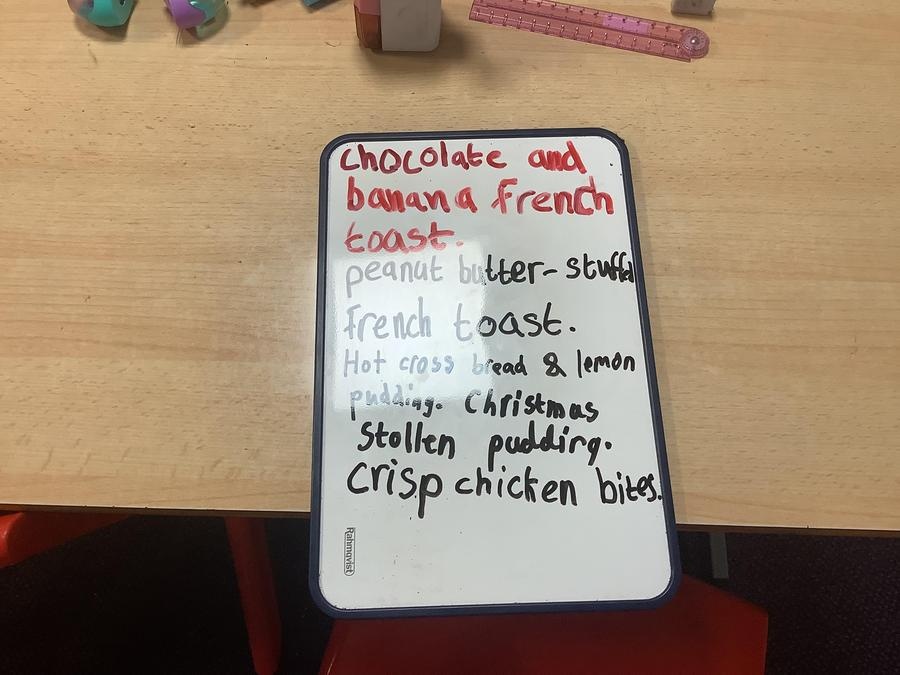 chocolate and
banana french
toast.
peanut butter- stuffed
french toast.
Hot cross bread & lemon
pudding. Christmas
Stollen pudding.
crisp chicken bites.
Rahmqvist